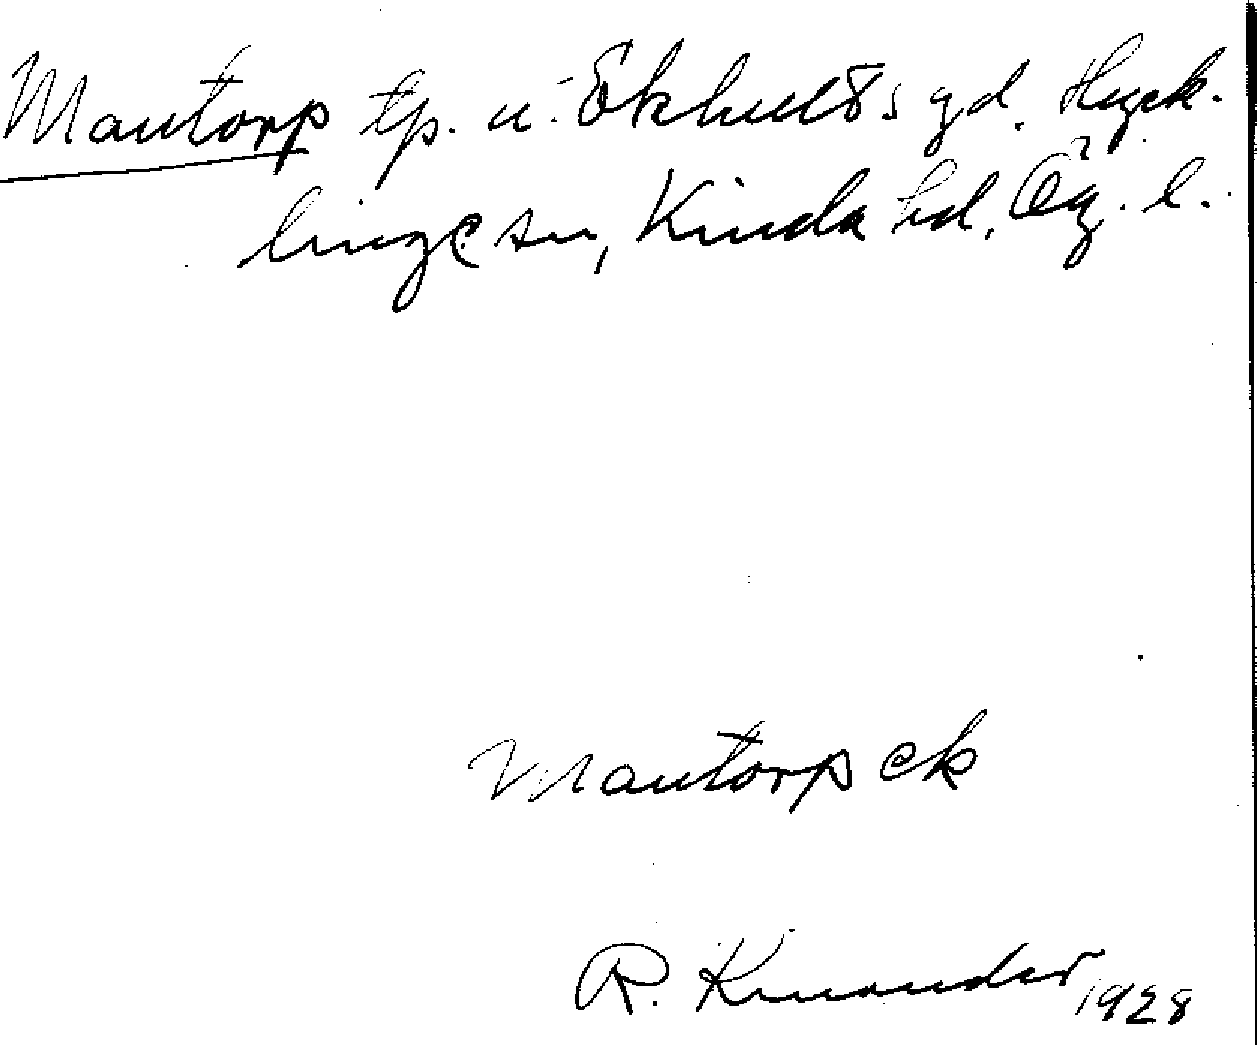 Mantorp tp. u. Ekhults gd. Hyck-
linge sn, Kinda hd, Ög. l.
Mantorp ek
R. Kinander 1928